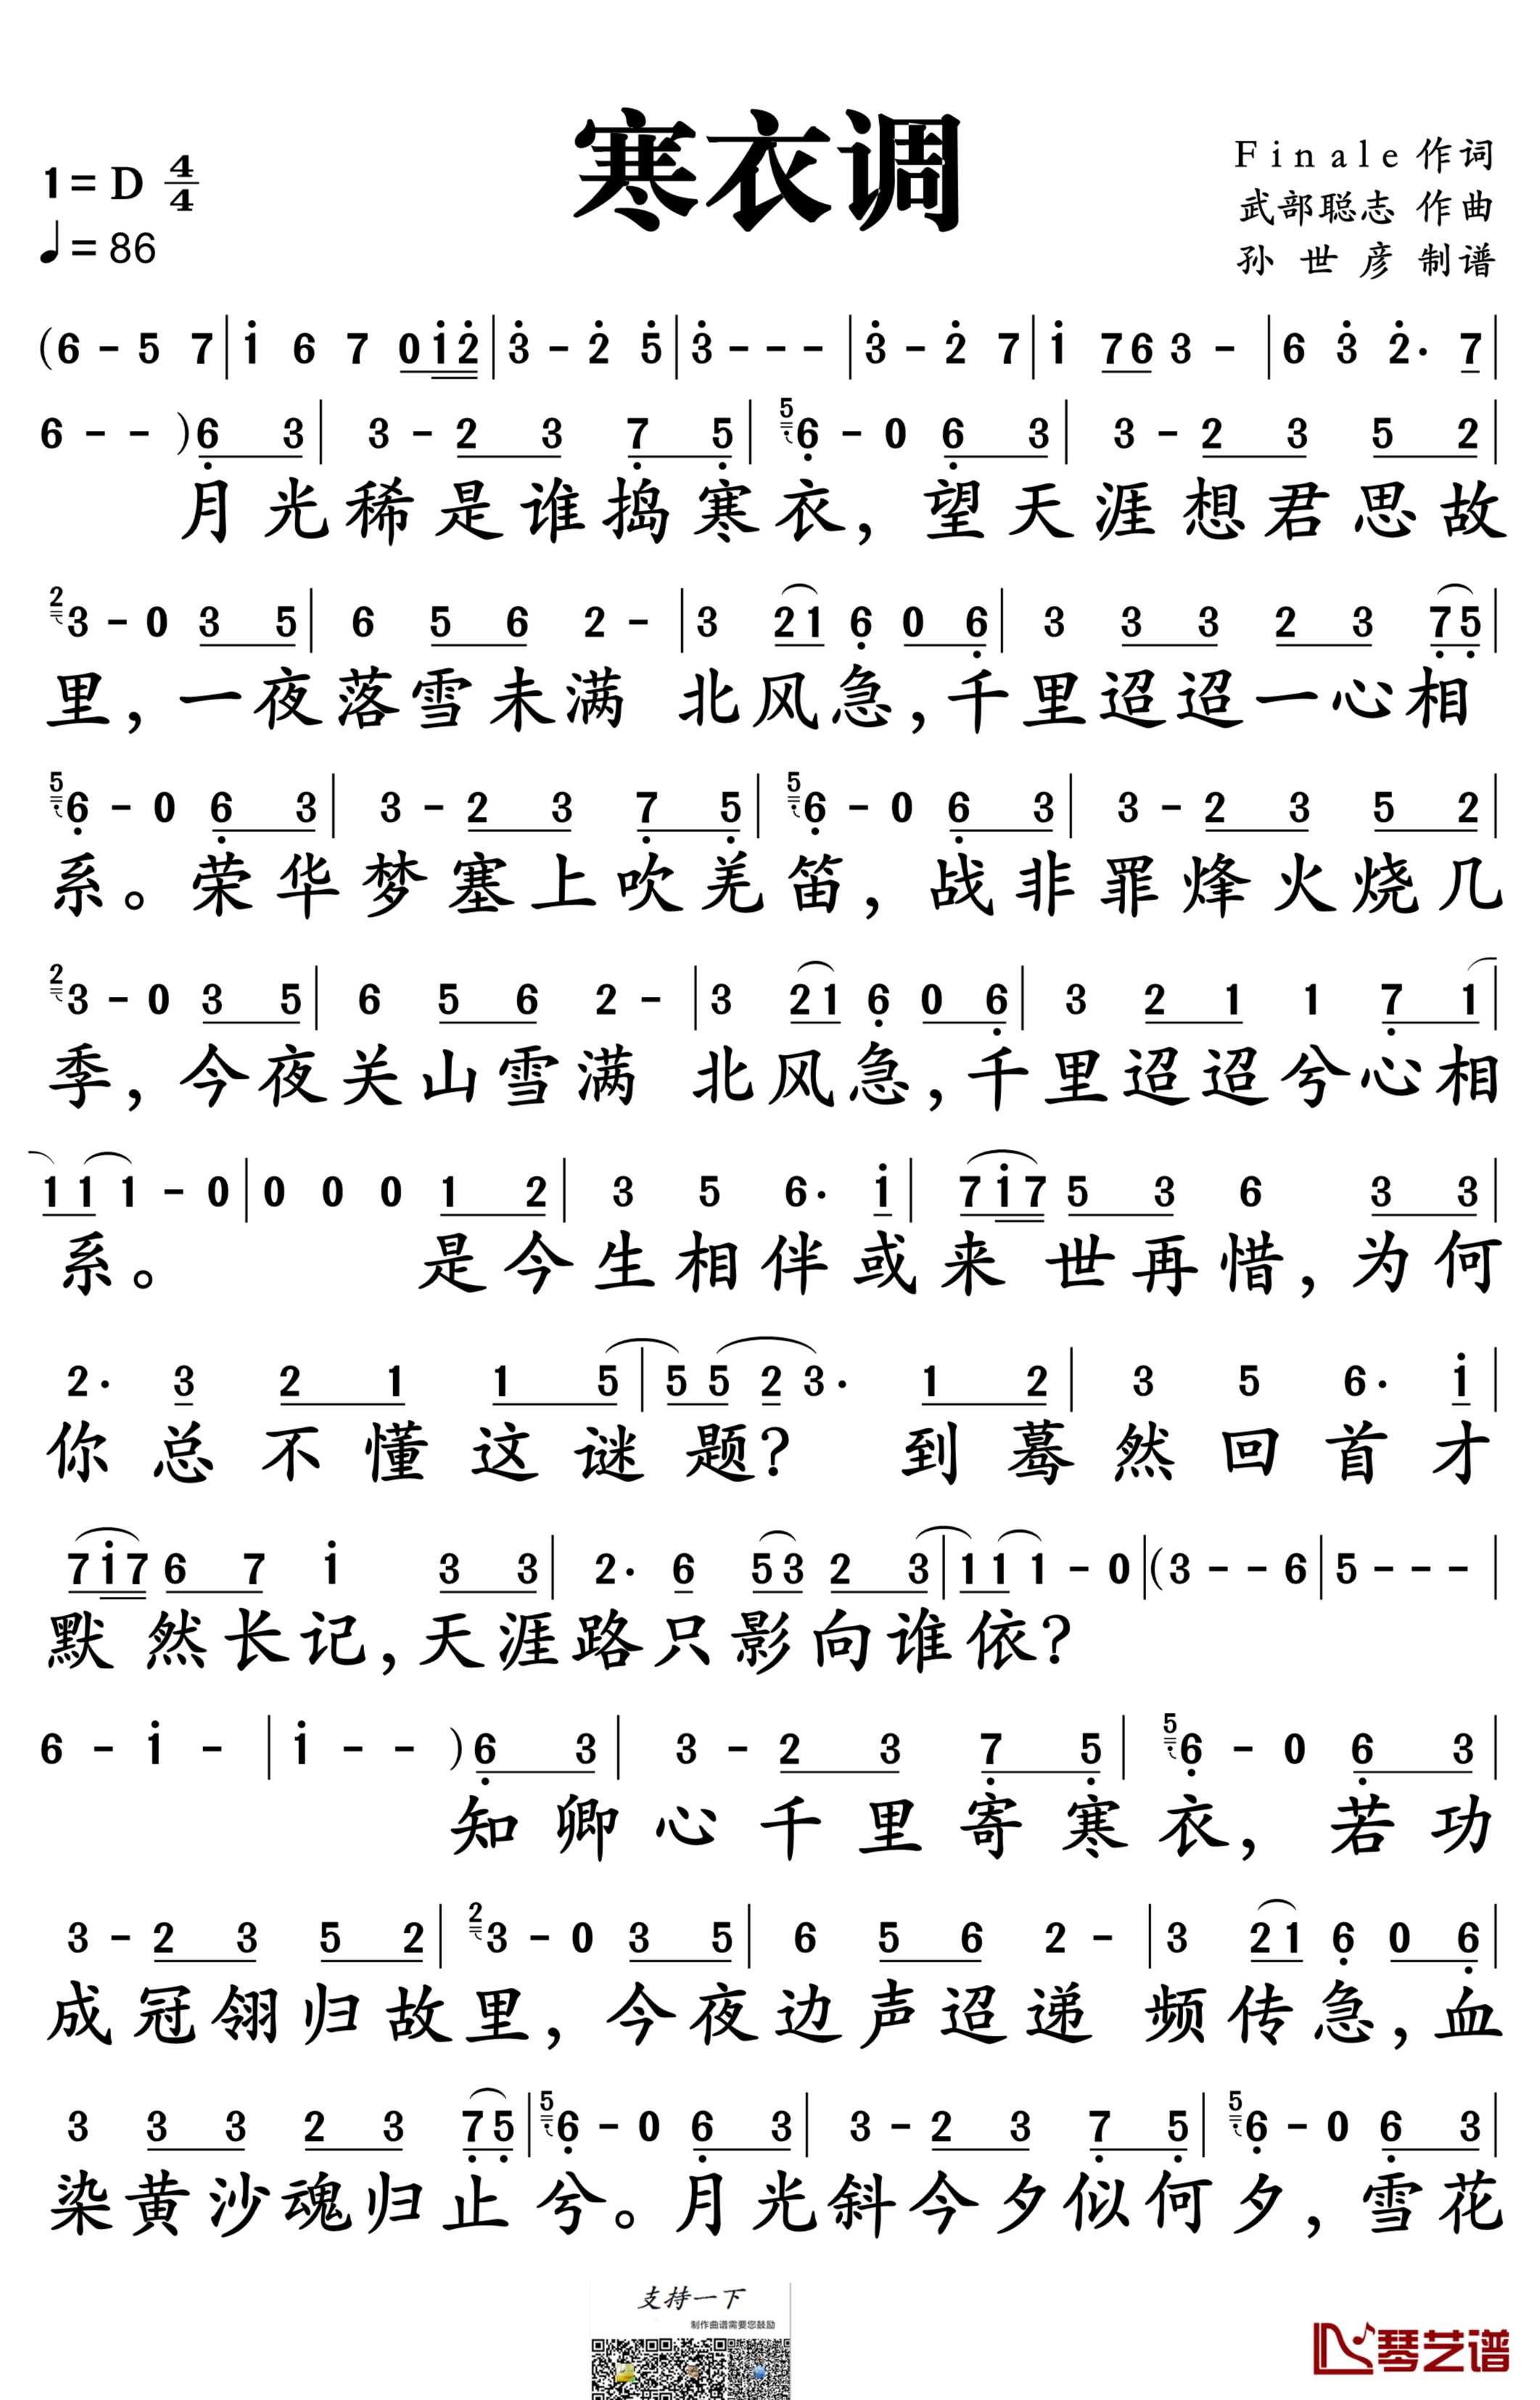 寒衣调
1= D 4/4
♩= 86
Finale 作词
武部聪志 作曲
孙世彦 制谱
(6 - 5 7 | i 6 7 0 i 2̇ | 3̇ - 2̇ 5̇ | 3̇ - - - | 3̇ - 2̇ 7 | i 7 6 3 - | 6 3̇ 2̇· 7 |
6 - - ) 6̣ 3 | 3 - 2 3 7̣ 5̣ | 5 6̣ - 0 6̣ 3 | 3 - 2 3 5 2 |
月光稀是谁捣寒衣，望天涯想君思故
2 3 - 0 3 5 | 6 5 6 2 - | 3 2 1 6̣ 0 6̣ | 3 3 3 2 3 7̣ 5̣ |
里，一夜落雪未满 北风急，千里迢迢一心相
5 6̣ - 0 6̣ 3 | 3 - 2 3 7̣ 5̣ | 5 6̣ - 0 6̣ 3 | 3 - 2 3 5 2 |
系。荣华梦塞上吹羌笛，战非罪烽火烧几
2 3 - 0 3 5 | 6 5 6 2 - | 3 2 1 6̣ 0 6̣ | 3 2 1 1 7̣ 1 |
季，今夜关山雪满 北风急，千里迢迢兮心相
1 1 1 - 0 | 0 0 0 1 2 | 3 5 6· i | 7 i 7 5 3 6 3 3 |
系。 是今生相伴或来 世再惜，为何
2· 3 2 1 1 5 | 5 5 2 3· 1 2 | 3 5 6· i |
你总不懂这谜题？ 到蓦然回首才
7 i 7 6 7 i 3 3 | 2· 6 5 3 2 3 | 1 1 1 - 0 | (3 - - 6 | 5 - - - |
默然长记，天涯路只影向谁依？
6 - i - | i - - ) 6̣ 3 | 3 - 2 3 7̣ 5̣ | 5 6̣ - 0 6̣ 3 |
知卿心千里寄寒衣，若功
3 - 2 3 5 2 | 2 3 - 0 3 5 | 6 5 6 2 - | 3 2 1 6̣ 0 6̣ |
成冠翎归故里，今夜边声迢递 频传急，血
3 3 3 2 3 7̣ 5̣ | 5 6̣ - 0 6̣ 3 | 3 - 2 3 7̣ 5̣ | 5 6̣ - 0 6̣ 3 |
染黄沙魂归止兮。月光斜今夕似何夕，雪花
支持一下
制作曲谱需要您鼓励
琴艺谱